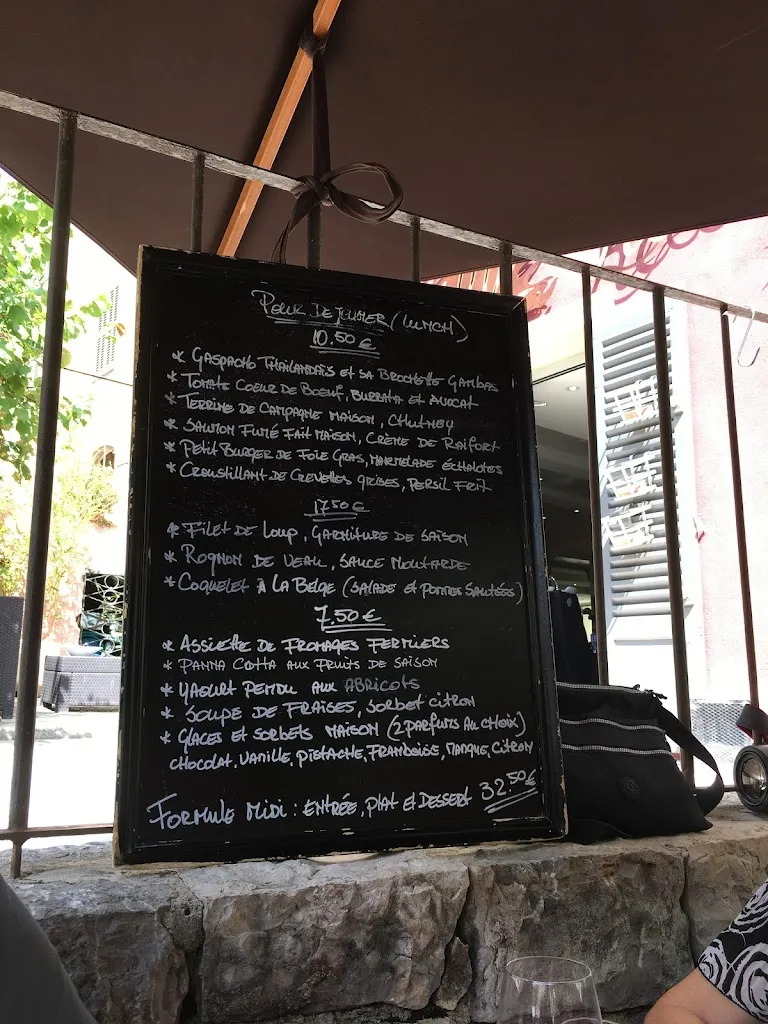 POUR DEJEUNER (LUNCH)
10.50 €
* GASPACHO THAILANDAIS ET SA BROCHETTE GAMBAS
* TOMATE COEUR DE BOEUF, BURRATA ET AVOCAT
* TERRINE DE CAMPAGNE MAISON, CHUTNEY
* SAUMON FUMÉ FAIT MAISON, CRÈME DE RAIFORT
* PETIT BURGER DE FOIE GRAS, MARMELADE ÉCHALOTES
* CROUSTILLANT DE CREVETTES GRISES, PERSIL FRIT
17.50 €
* FILET DE LOUP, GARNITURE DE SAISON
* ROGNON DE VEAU, SAUCE MOUTARDE
* COQUELET À LA BELGE (SALADE ET POMMES SAUTÉES)
7.50 €
* ASSIETTE DE FROMAGES FERMIERS
* PANNA COTTA AUX FRUITS DE SAISON
* YAOURT PENDU AUX ABRICOTS
* SOUPE DE FRAISES, SORBET CITRON
* GLACES ET SORBETS MAISON (2 PARFUMS AU CHOIX)
CHOCOLAT, VANILLE, PISTACHE, FRAMBOISE, MANGUE, CITRON
FORMULE MIDI : ENTRÉE, PLAT ET DESSERT 32.50 €